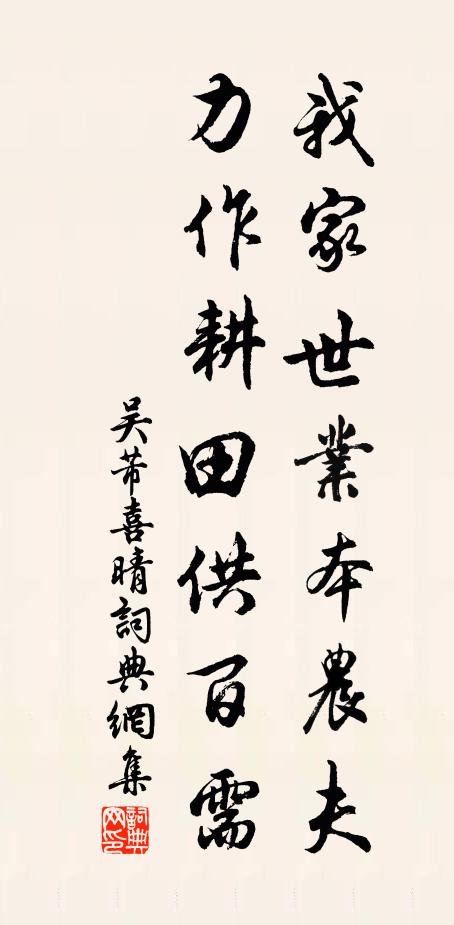 我家世業本農夫
力作耕田供百需
吴芾喜晴詞典網集
詞典網印